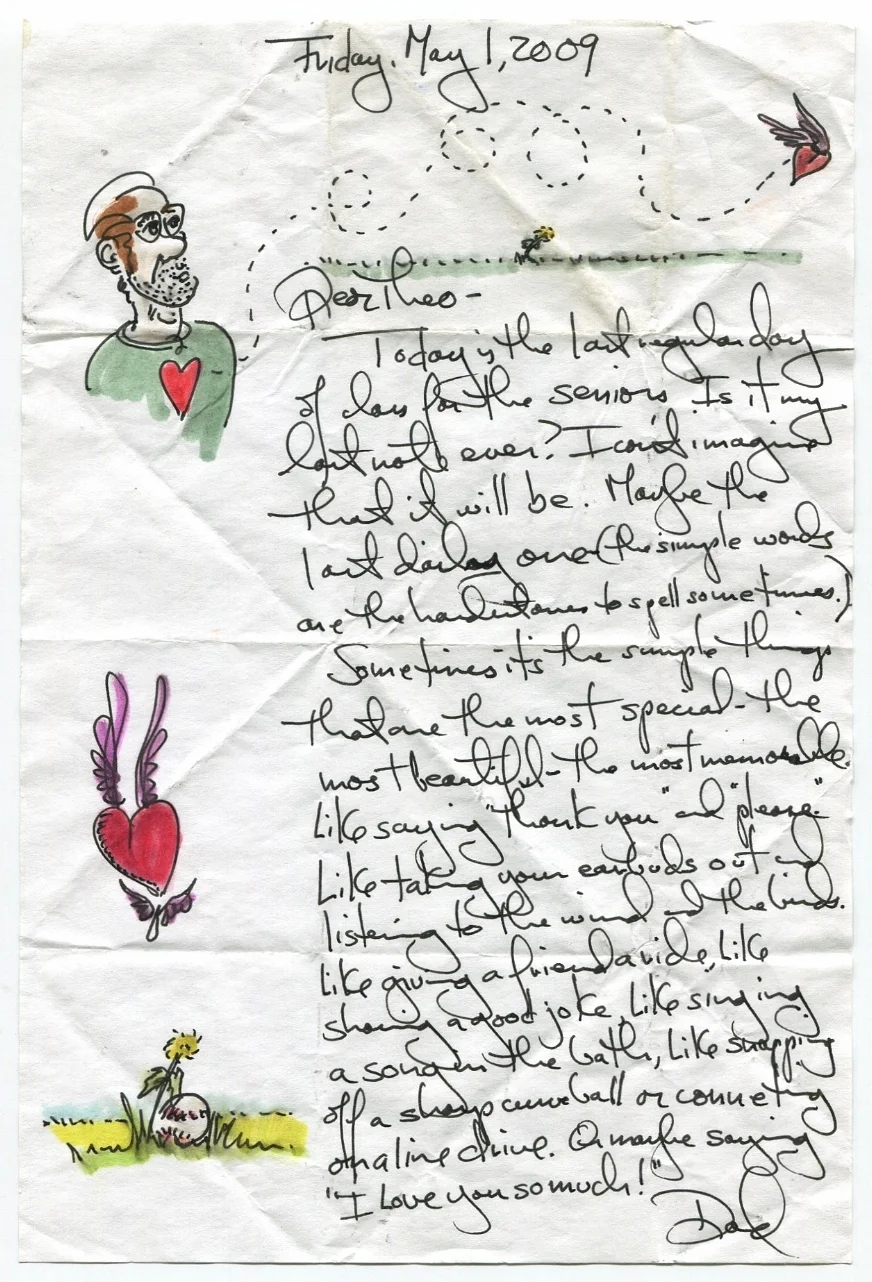 Friday, May 1, 2009
Dear Theo-
Today is the last regular day
of class for the seniors. Is it my
last note ever? I can't imagine
that it will be. Maybe the
last daily one (the simple words
are the hardest ones to spell sometimes.)
Sometimes it's the simple things
that are the most special - the
most beautiful - the most memorable.
Like saying "thank you" and "please."
Like taking your earbuds out and
listening to the wind and the birds.
Like giving a friend a ride, Like
sharing a good joke, Like singing
a song in the bath, Like snapping
off a sharp curveball or connecting
on a line drive. Or maybe saying
"I Love you so much!"
Dad